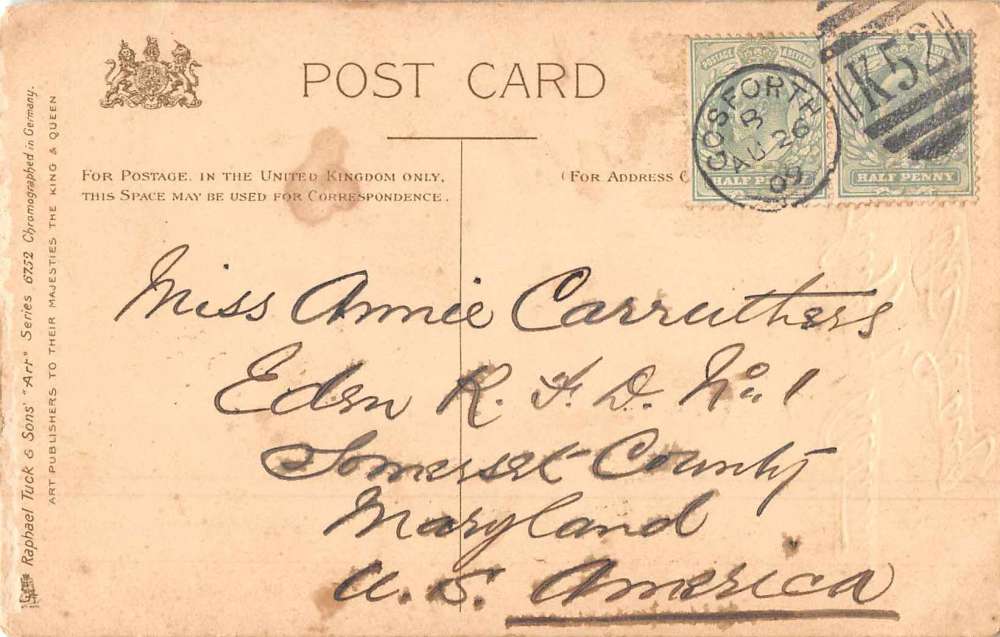 POST CARD
FOR POSTAGE. IN THE UNITED KINGDOM ONLY,
THIS SPACE MAY BE USED FOR CORRESPONDENCE.
(FOR ADDRESS
POSTAGE
HALF PENNY
GOSFORTH
B
AU 26
09
K52
HALF PENNY
Miss Annie Carruthers
Eden R. F. D. No. 1
Somerset County
Maryland
U. S. America
Raphael Tuck & Sons' "Art" Series 6752 Chromographed in Germany.
ART PUBLISHERS TO THEIR MAJESTIES THE KING & QUEEN